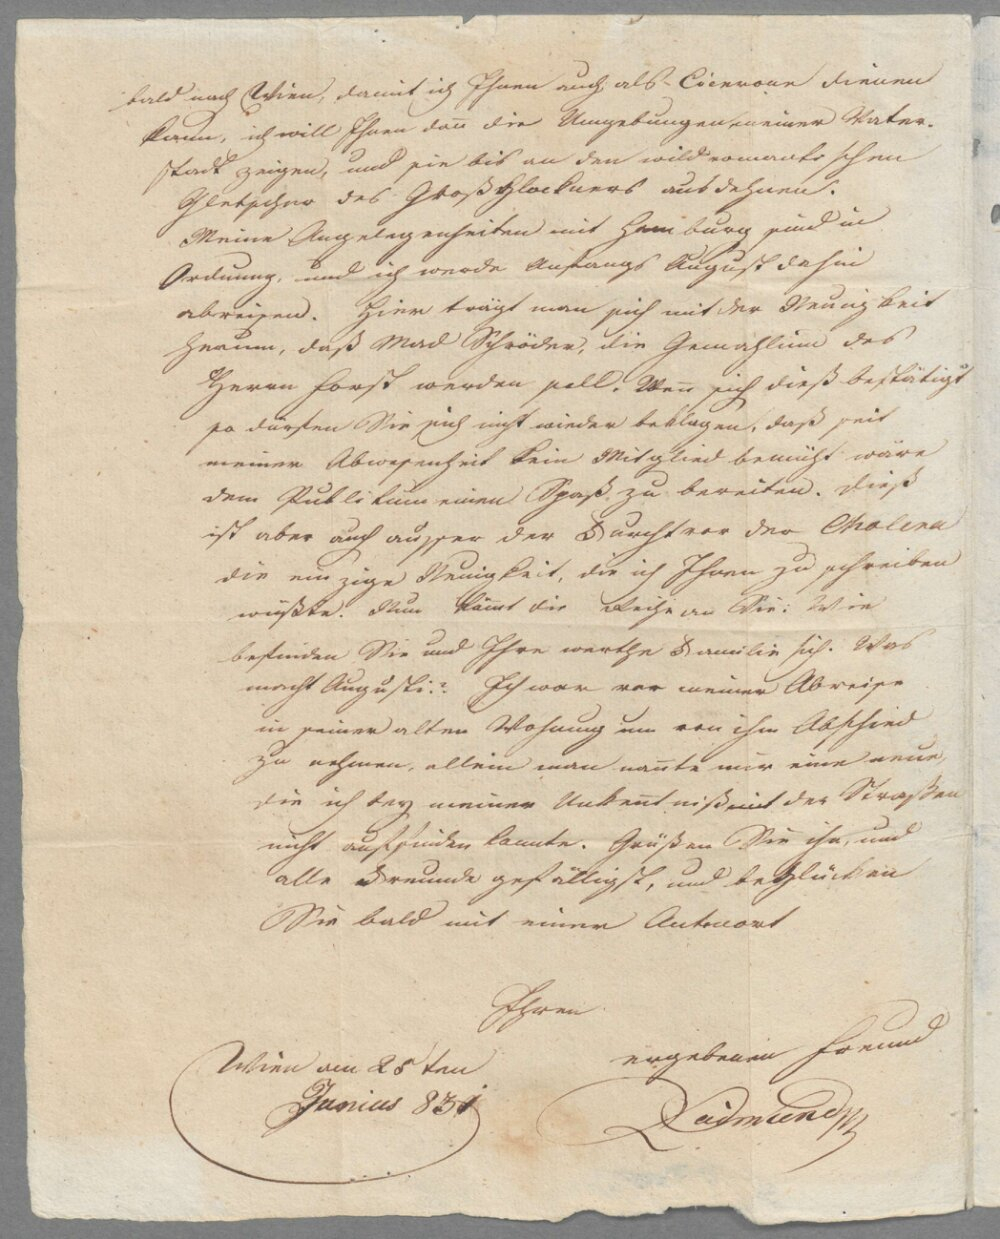 bald nach Wien, damit ich Ihnen auch als Cicerone dienen
kann, ich will Ihnen dan̄ die Umgebungen meiner Vater-
stadt zeigen, und sie bis an den wildromantischen
Gletscher des Großglockners ausdehnen.
Meine Angelegenheiten mit Hamburg sind in
Ordnung, und ich werde Anfangs August dahin
abreisen. Hier trägt man sich mit der Neuigkeit
herum, daß Mad Schröder, die Gemahlinn des
Herrn Forst werden soll. Wen̄ sich dieß bestätigt
so dürfen Sie sich nicht wieder beklagen, daß seit
meiner Abwesenheit kein Mitglied bemüht wäre
dem Publikum einen Spaß zu bereiten. Dieß
ist aber auch ausser der Furcht vor der Cholera
die einzige Neuigkeit, die ich Ihnen zu schreiben
wüßte. Nun kömt die Reihe an Sie: Wie
befinden Sie und Ihre werthe Familie sich. Was
macht Augusti? Ich war vor meiner Abreise
in seiner alten Wohnung um von ihm Abschied
zu nehmen, allein man nan̄te mir eine neue,
die ich bey meiner Unken̄tniß mit der Straßen
nicht auffinden konnte. Grüßen Sie ihn, und
alle Freunde gefälligst, und beglücken
Sie bald mit einer Antwort
Ihren
ergebenen Freund
Raimund
Wien am 28ten
Junius 831